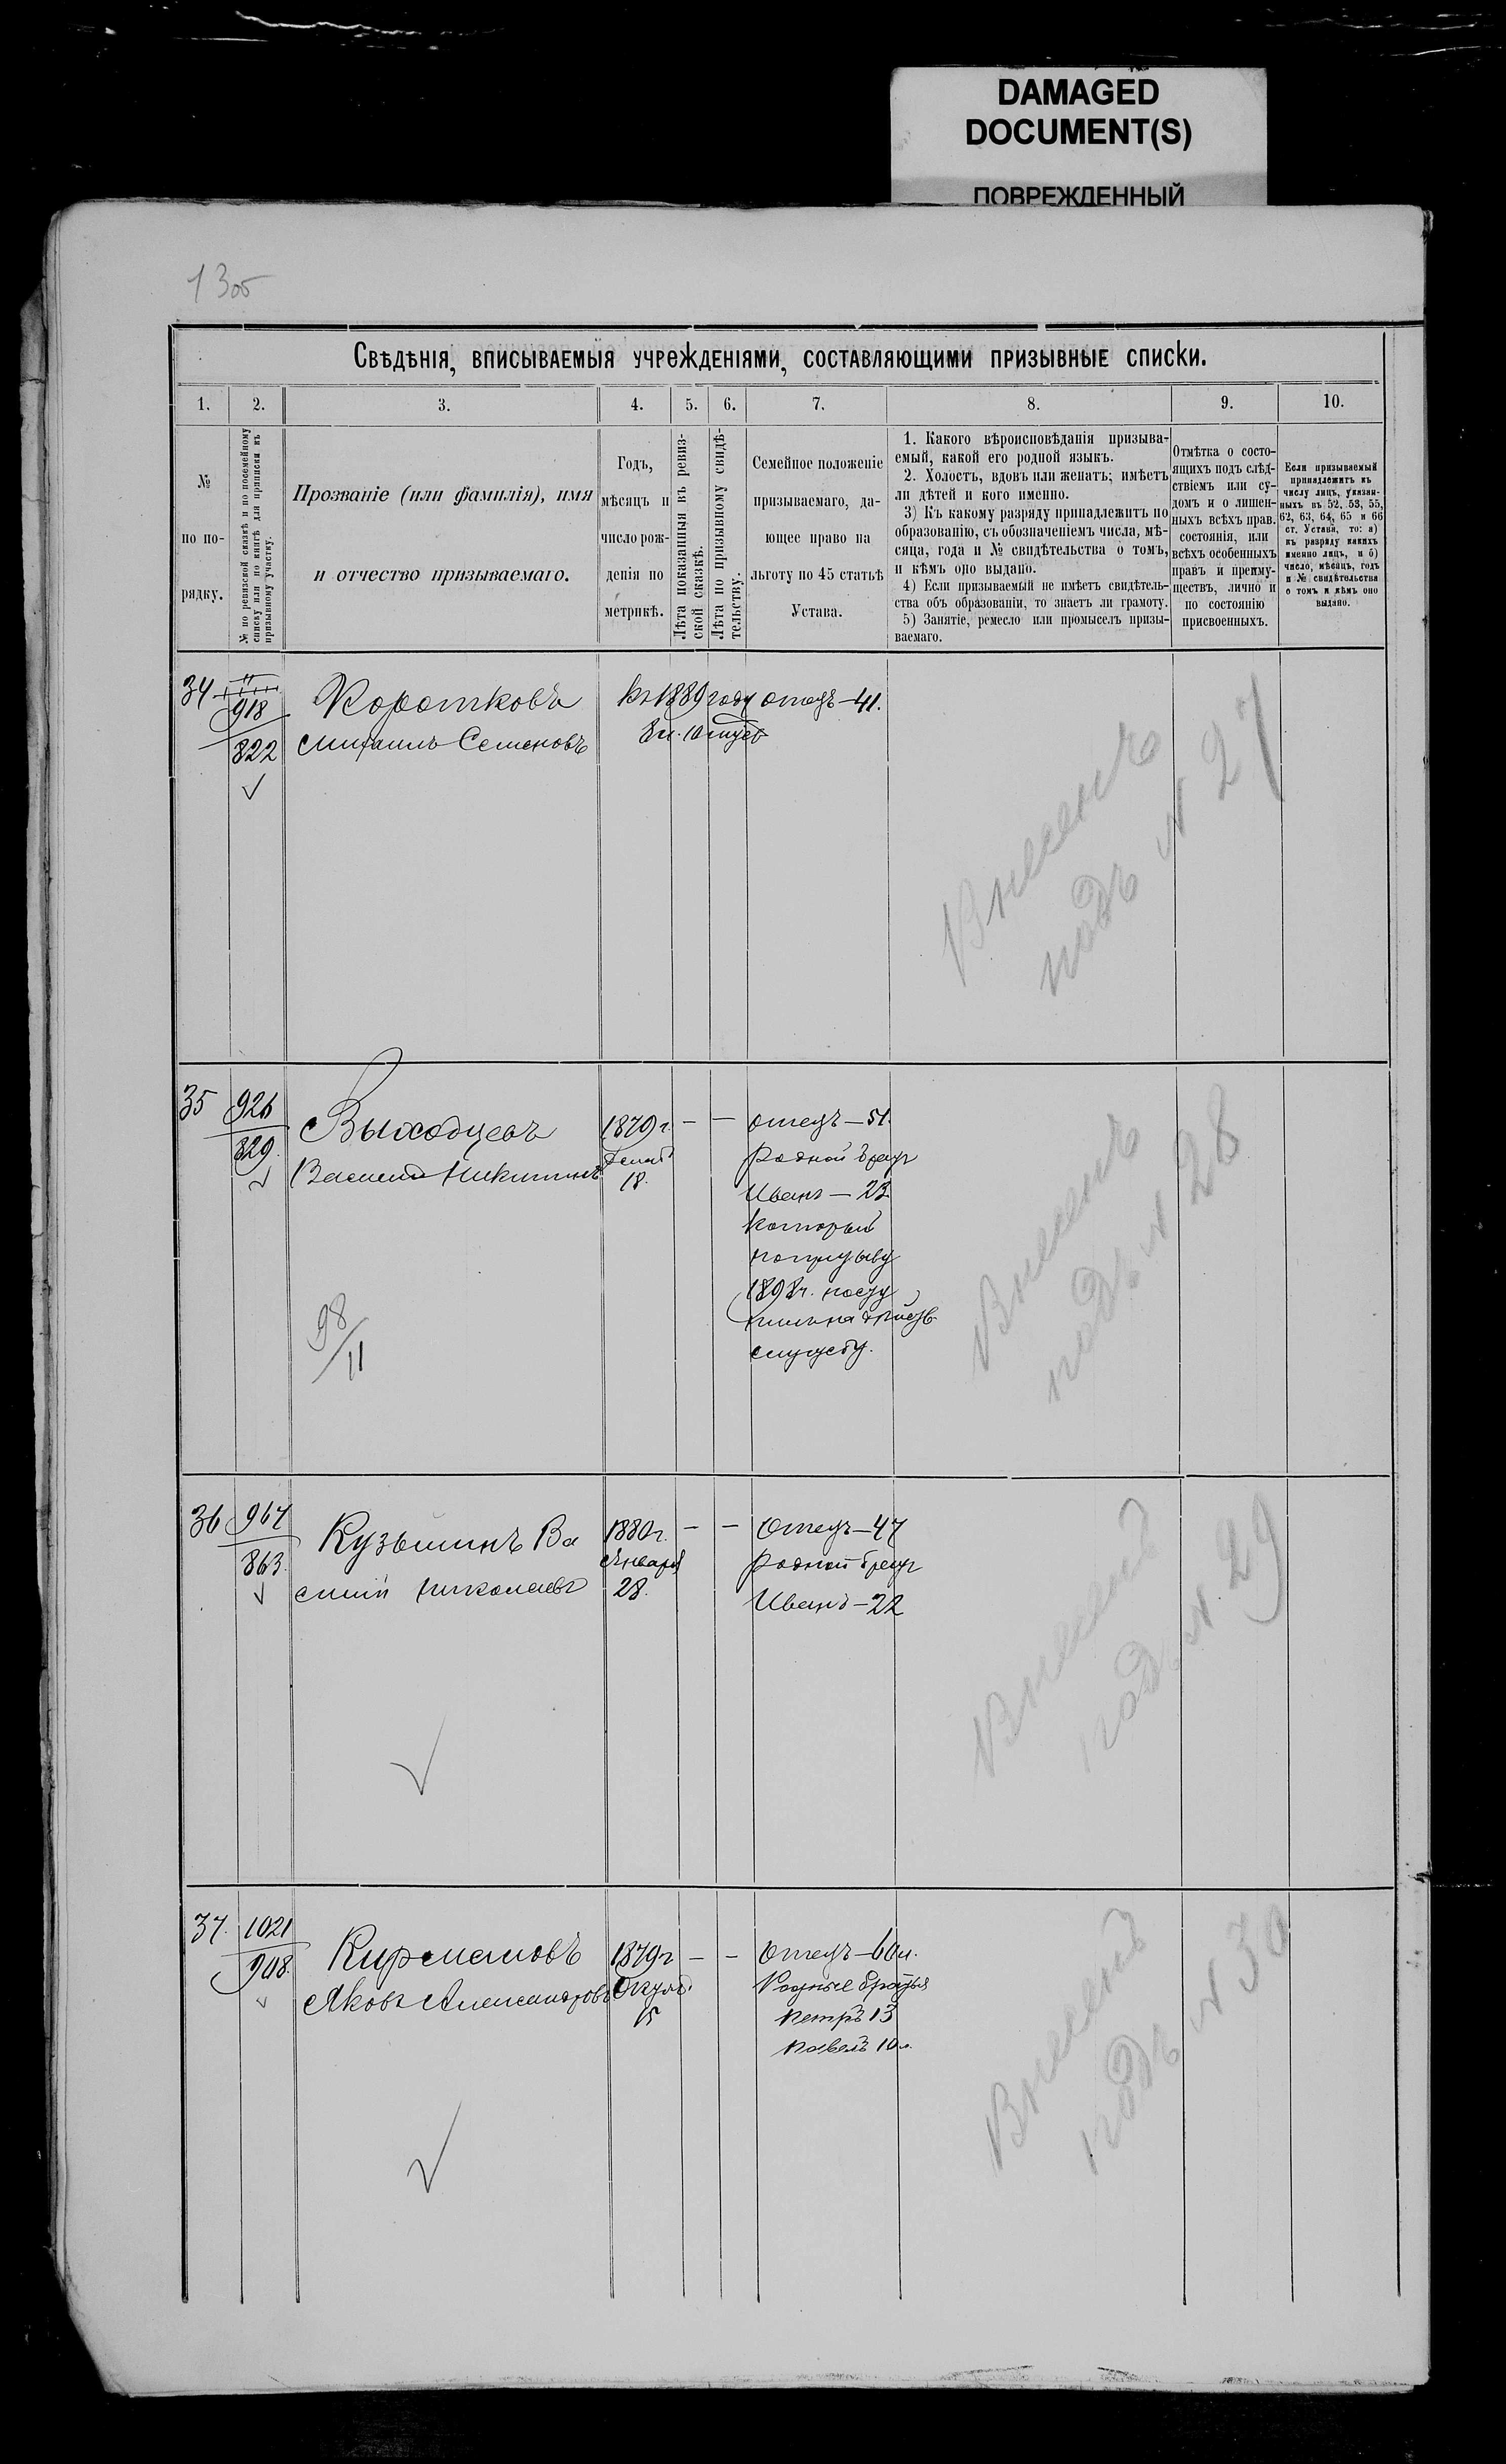 DAMAGED
DOCUMENT(S)
ПОВРЕЖДЕННЫЙ
Свѣдѣнія, вписываемыя учрежденіями, составляющими призывные списки.
1. 2. 3. 4. 5. 6. 7. 8. 9. 10.
№
по по-
рядку.
№ по ревизской сказкѣ и по посемейному
списку или по книгѣ для приписки къ
призывному участку.
Прозваніе (или фамилія), имя
и отчество призываемаго.
Годъ,
мѣсяцъ и
число рож-
денія по
метрикѣ.
Лѣта показанныя въ ревиз-
ской сказкѣ.
Лѣта по призывному свидѣ-
тельству.
Семейное положеніе
призываемаго, да-
ющее право на
льготу по 45 статьѣ
Устава.
1. Какого вѣроисповѣданія призыва-
емый, какой его родной языкъ.
2. Холостъ, вдовъ или женатъ; имѣетъ
ли дѣтей и кого именно.
3) Къ какому разряду принадлежитъ по
образованію, съ обозначеніемъ числа, мѣ-
сяца, года и № свидѣтельства о томъ,
и кѣмъ оно выдано.
4) Если призываемый не имѣетъ свидѣтель-
ства объ образованіи, то знаетъ ли грамоту.
5) Занятіе, ремесло или промыселъ призы-
ваемаго.
Отмѣтка о состо-
ящихъ подъ слѣд-
ствіемъ или су-
домъ и о лишен-
ныхъ всѣхъ прав.
состоянія, или
всѣхъ особенныхъ
правъ и преиму-
ществъ, лично и
по состоянію
присвоенныхъ.
Если призываемый
принадлежитъ къ
числу лицъ, указан-
ныхъ въ 52, 53, 55,
62, 63, 64, 65 и 66
ст. Устава, то: а)
къ разряду какихъ
именно лицъ, и б)
число, мѣсяцъ, годъ
и № свидѣтельства
о томъ и кѣмъ оно
выдано.
34
918
822
Коротковъ
Михаилъ Семеновъ
Въ 1889 году отецъ—41.
Внесенъ
подъ № 27
35
926
829
Выходцевъ
Василій Никитинъ
98/11
1879 г.
18.
— —
отецъ—51.
Родной братъ
Иванъ—23
который
по призыву
1898 г. посту
службу.
Внесенъ
подъ № 28
36
967
863
Кузьминъ Ва
силій Николаевъ
1880 г.
Января
28.
— —
Отецъ—47
Родной братъ
Иванъ—22
Внесенъ
подъ № 29
37.
1021
908.
Яковъ Александровъ
1879 г
15
— —
Отецъ—60 л.
Родные братья
Петръ 13
Павелъ 10 л.
Внесенъ
подъ № 30